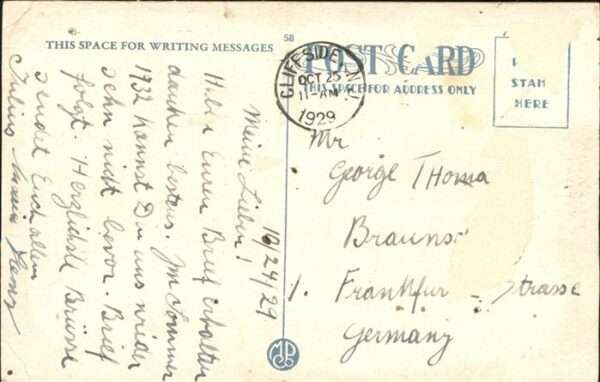 58
THIS SPACE FOR WRITING MESSAGES
POST CARD
THIS SPACE FOR ADDRESS ONLY
STAM
HERE
CLIFFSIDE, N.J.
OCT 25
11-AM
1929
10/24/29
Meine Lieben!
Euren Brief erhalten
danken bestens. Im Sommer
1932 kannst Du uns wieder
sehn nicht bevor. Brief
folgt. Herzlichste Grüsse
sendet Euch allen
Julius
Mr
George Thoma
Frankfur Strasse
Germany